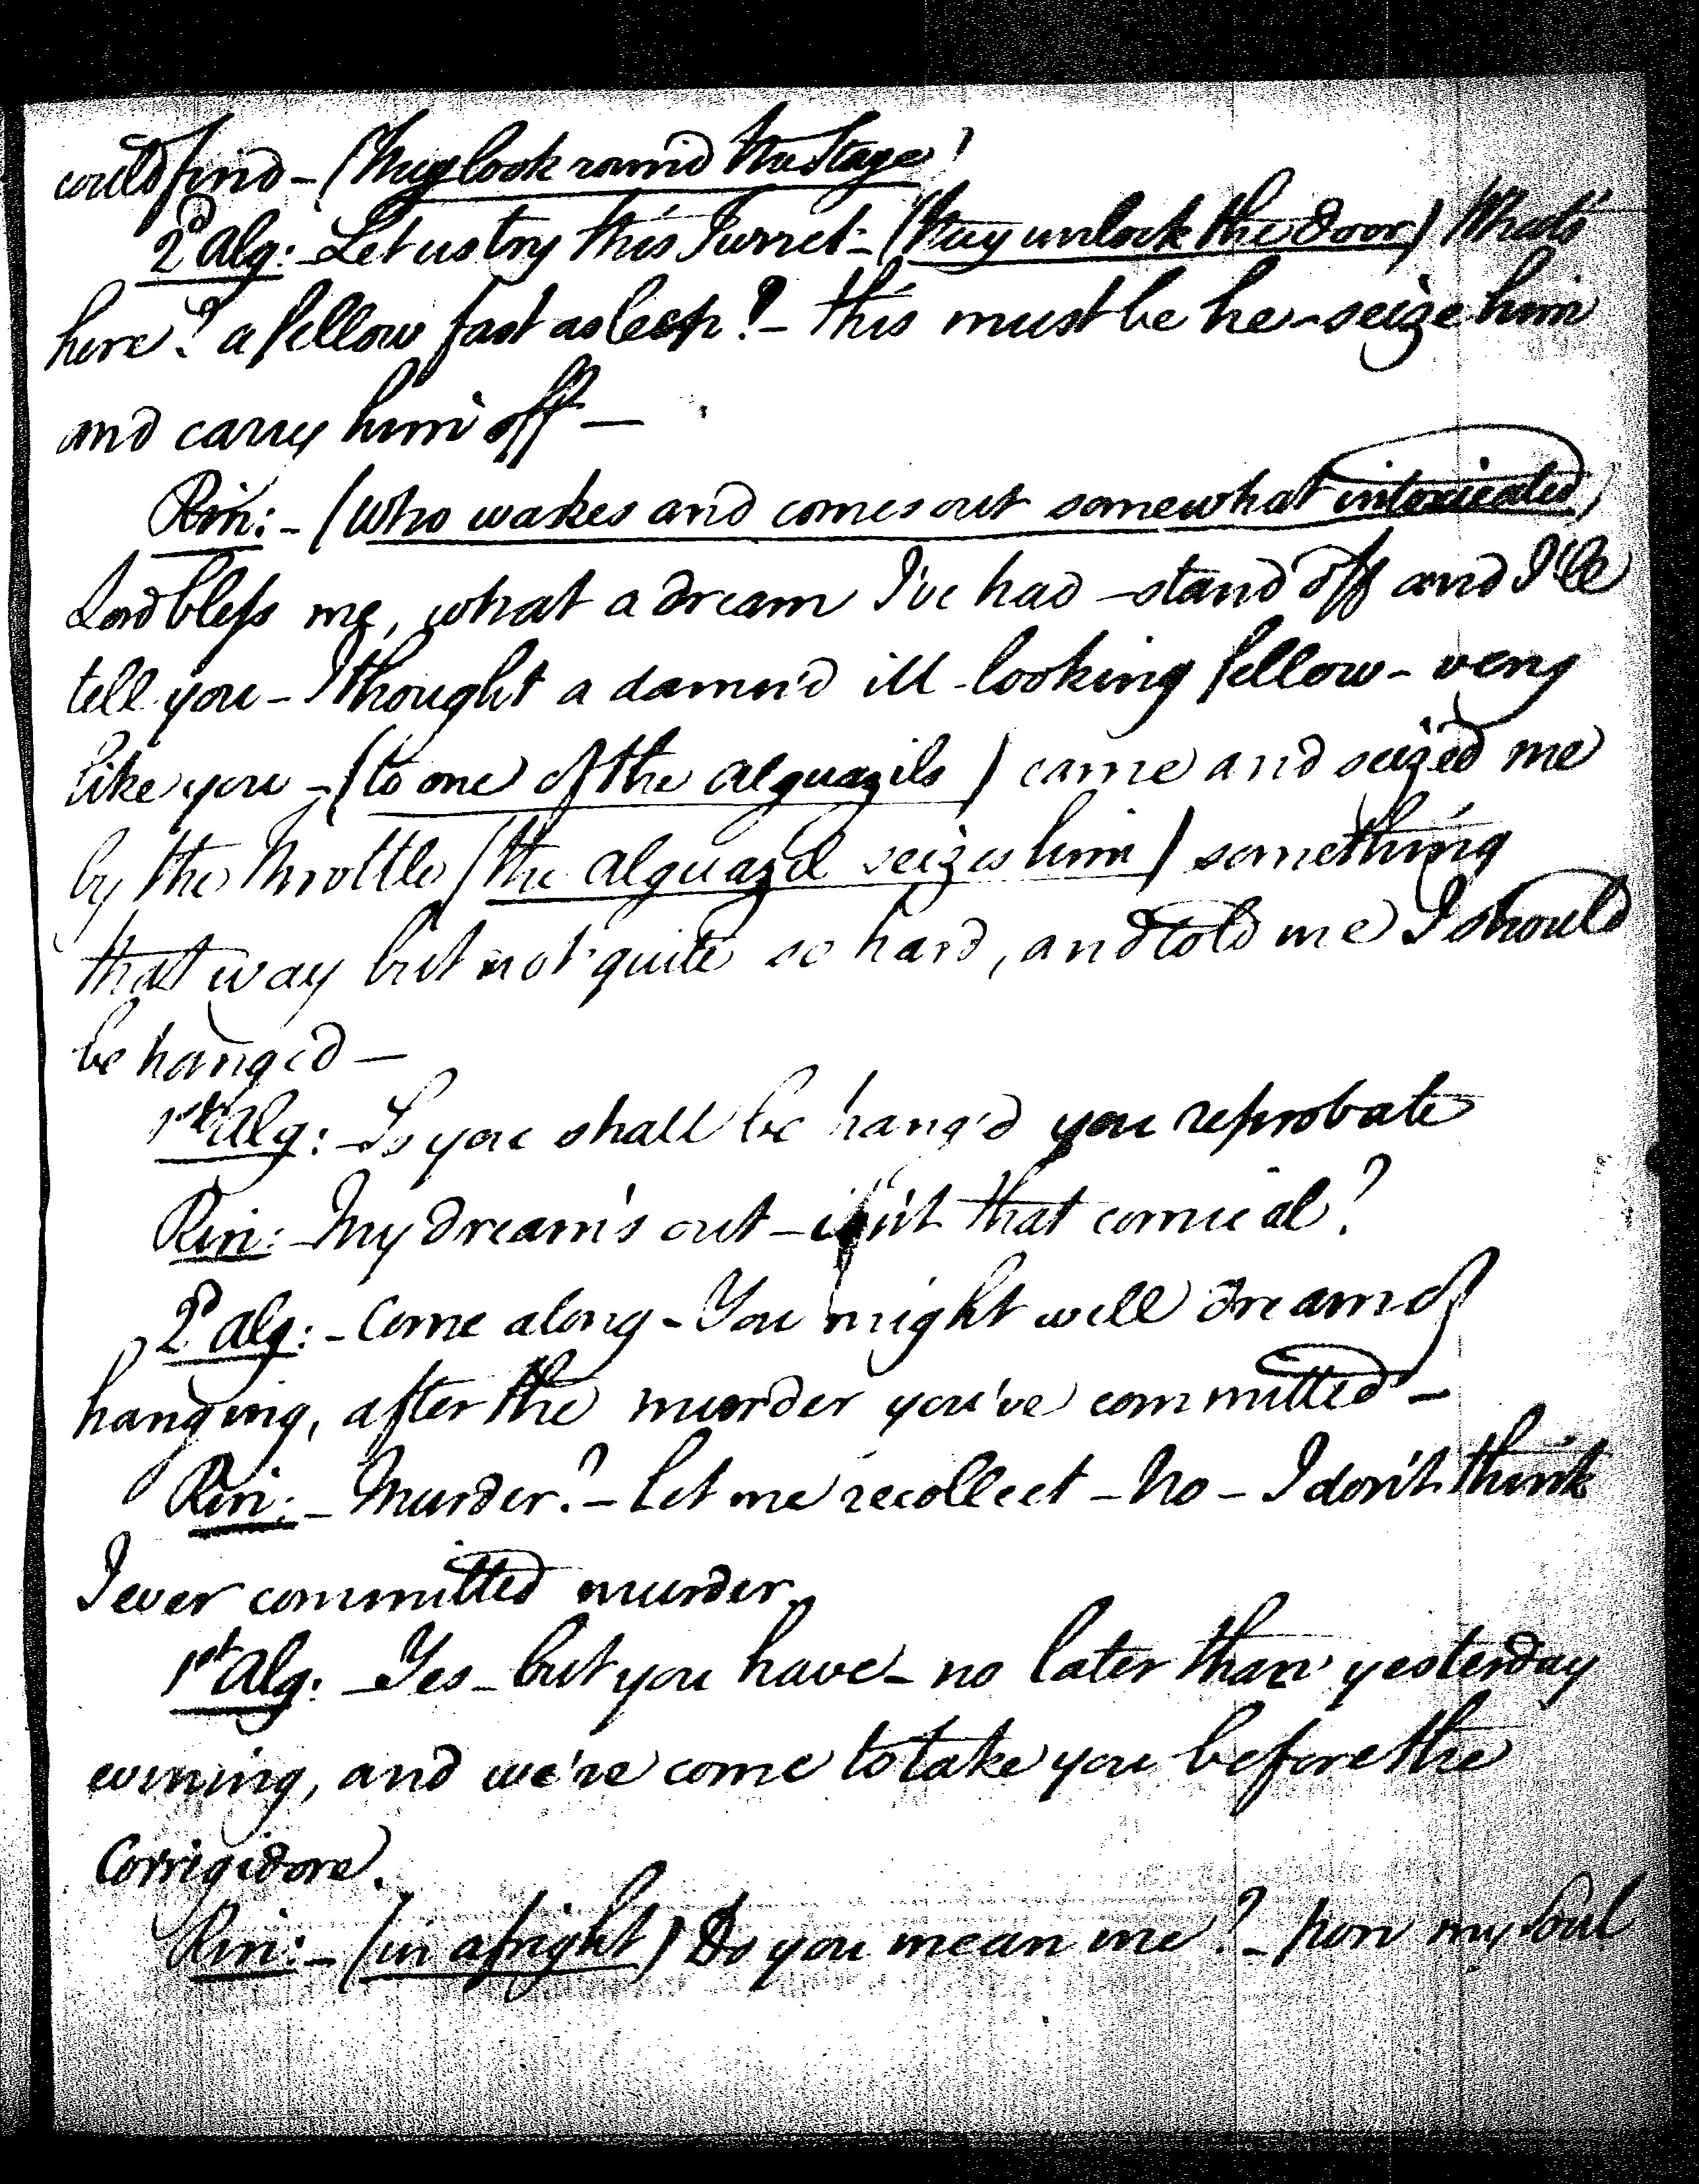 could find - (they look round the Stage)
2d Alg: - Let us try this Turret - (they unlock the door) What's
here? a fellow fast asleep? - this must be he - seize him
and carry him off -
Rin: - (who wakes and comes out somewhat intoxicated)
Lord bless me, what a dream I've had - stand off and I'll
tell you - I thought a damn'd ill-looking fellow - very
like you - (to one of the alguazils) came and seized me
by the throttle (the alguazil seizes him) something
that way but not quite so hard, and told me I should
be hang'd -
1st Alg: - So you shall be hang'd you reprobate
Rin: - My dream's out - isn't that comical?
2d Alg: - Come along - You might well dream of
hanging, after the murder you've committed -
Rin: - Murder? - Let me recollect - No - I don't think
I ever committed murder.
1st Alg: - Yes - but you have - no later than yesterday
evening, and we're come to take you before the
Corrigidore.
Rin: - (in a fright) Do you mean me? - pon my Soul